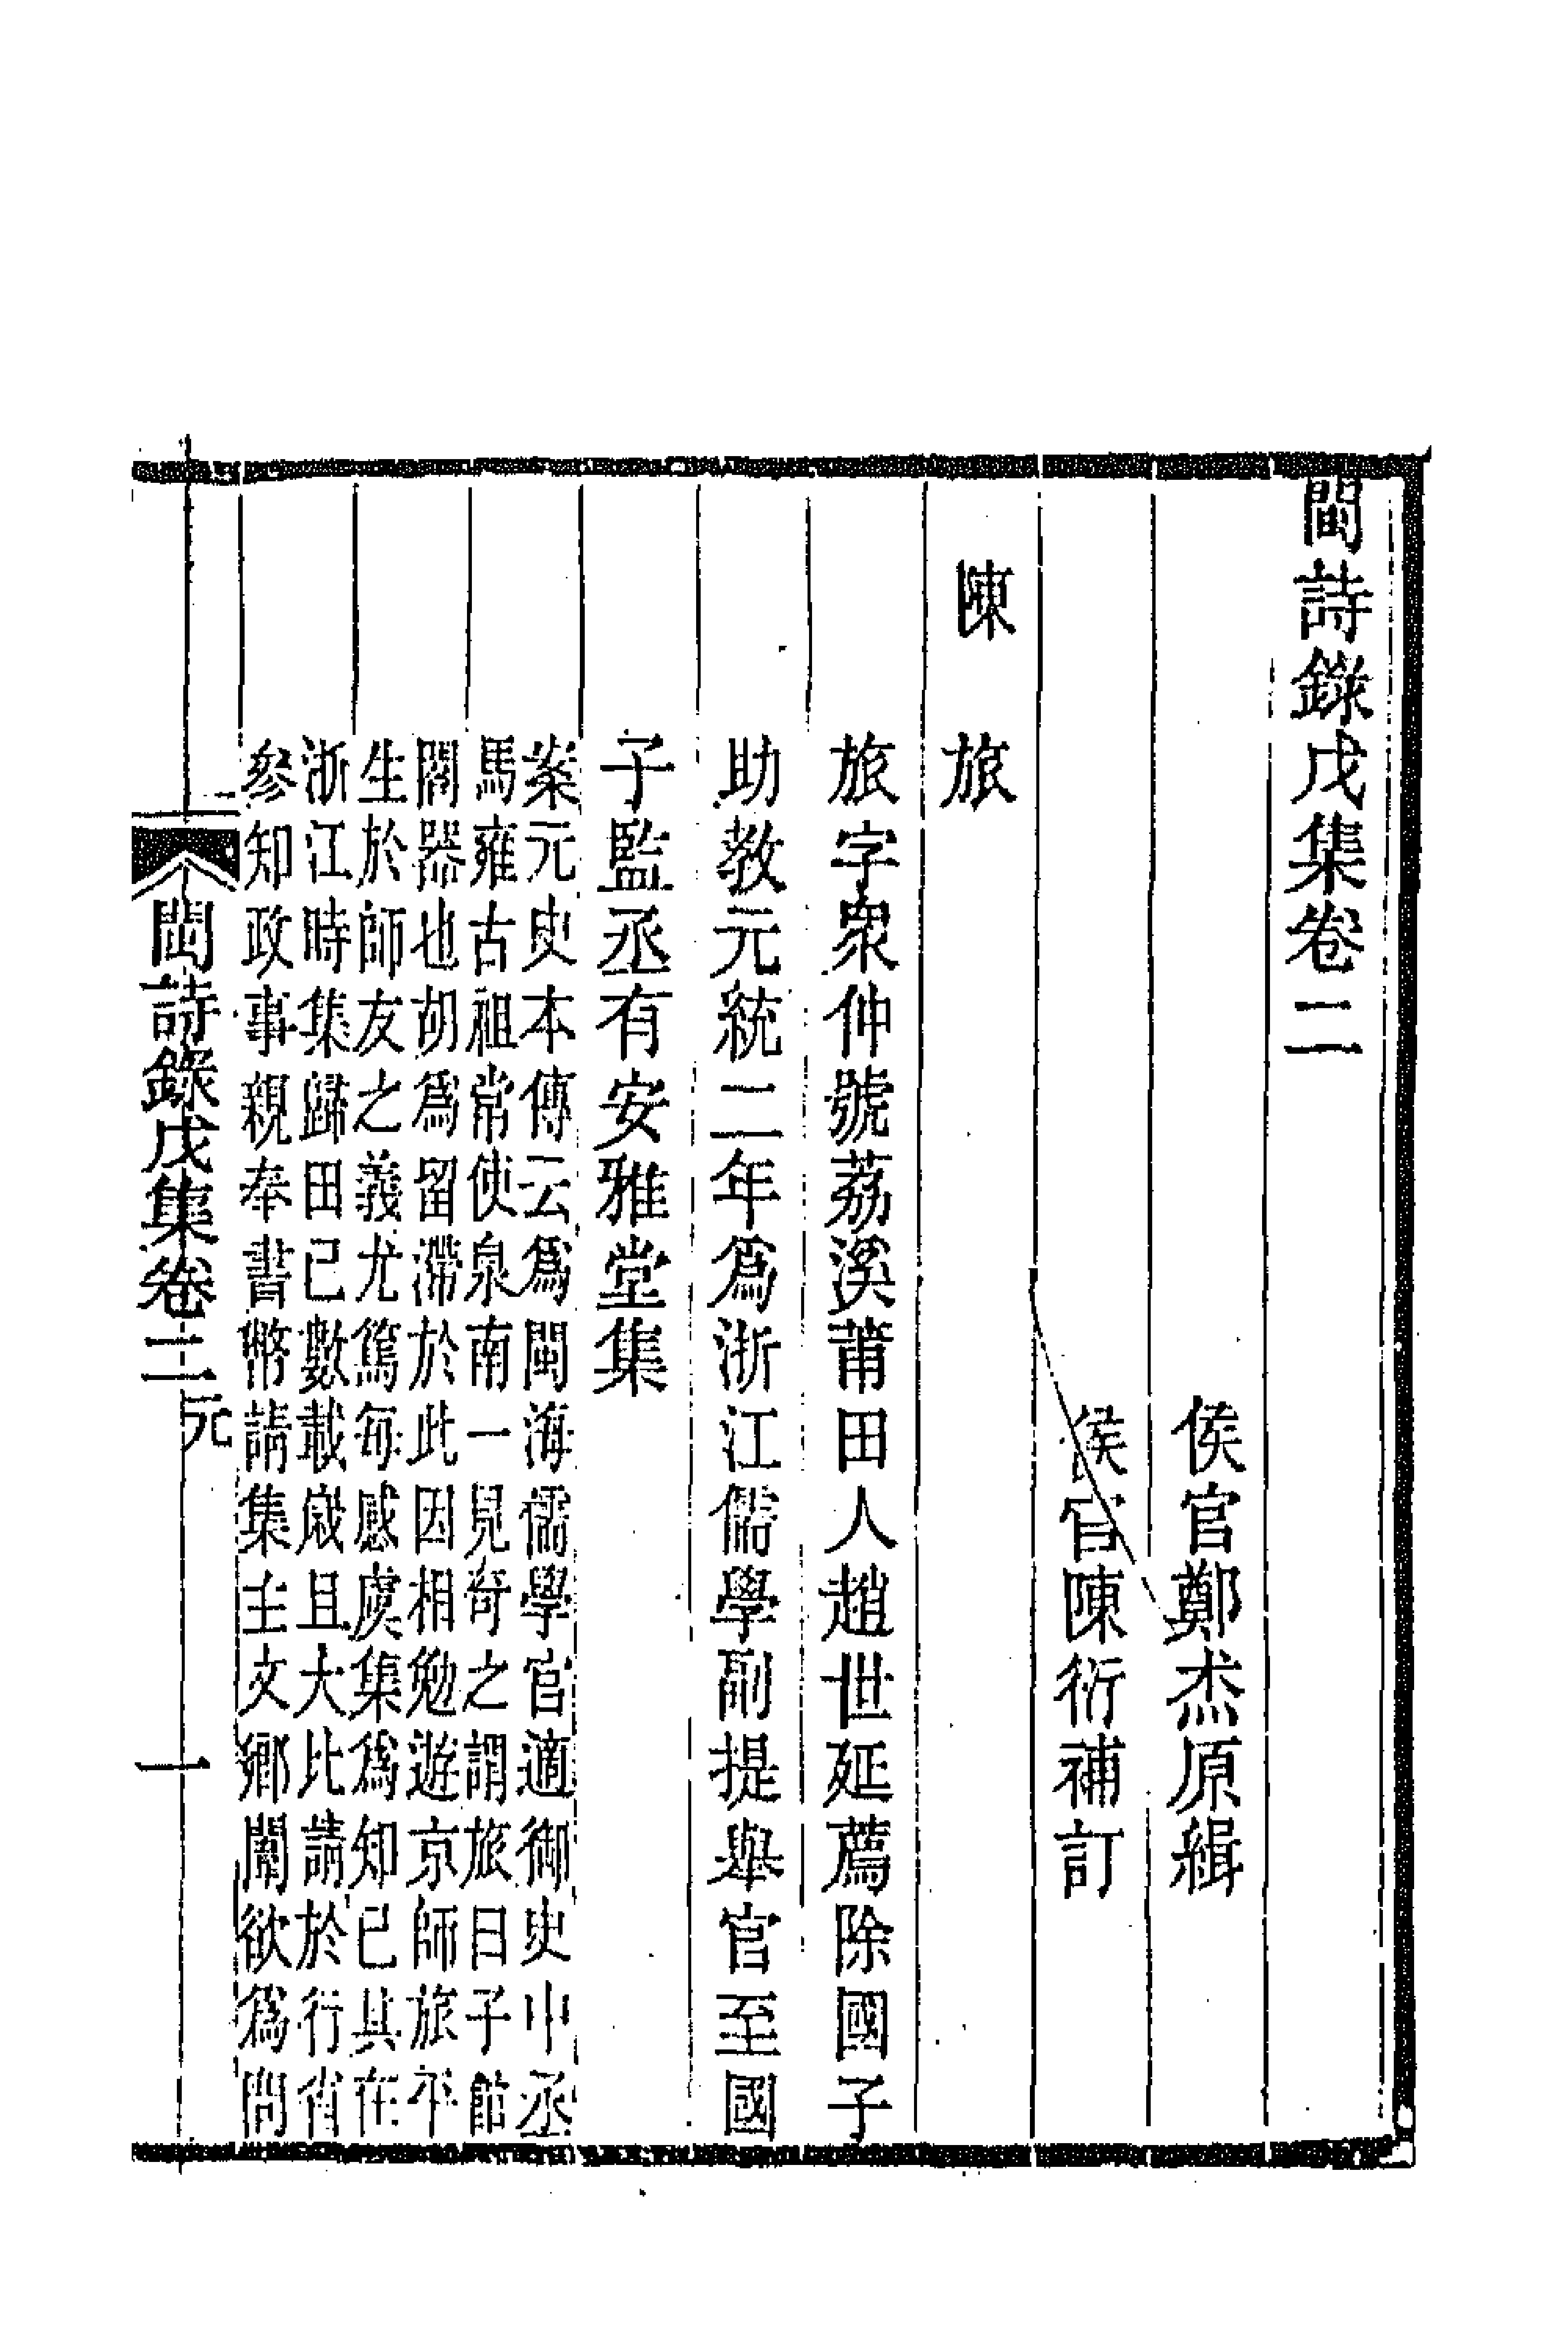 閩詩錄戊集卷二
侯官鄭杰原緝
侯官陳衍補訂
陳　旅
旅字衆仲號荔溪莆田人趙世延薦除國子
助教元統二年爲浙江儒學副提舉官至國
子監丞有安雅堂集
案元史本傳云爲閩海儒學官適御史中丞
馬雍古祖常使泉南一見奇之謂旅曰子館
閣器也胡爲留滯於此因相勉遊京師旅平
生於師友之義尤篤每感虞集爲知己其在
浙江時集歸田已數載歲且大比請於行省
參知政事親奉書幣請集主文鄉闈欲爲問
閩詩錄戊集卷二　元　一